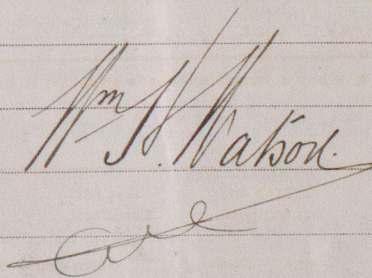 Wm H. Watson.